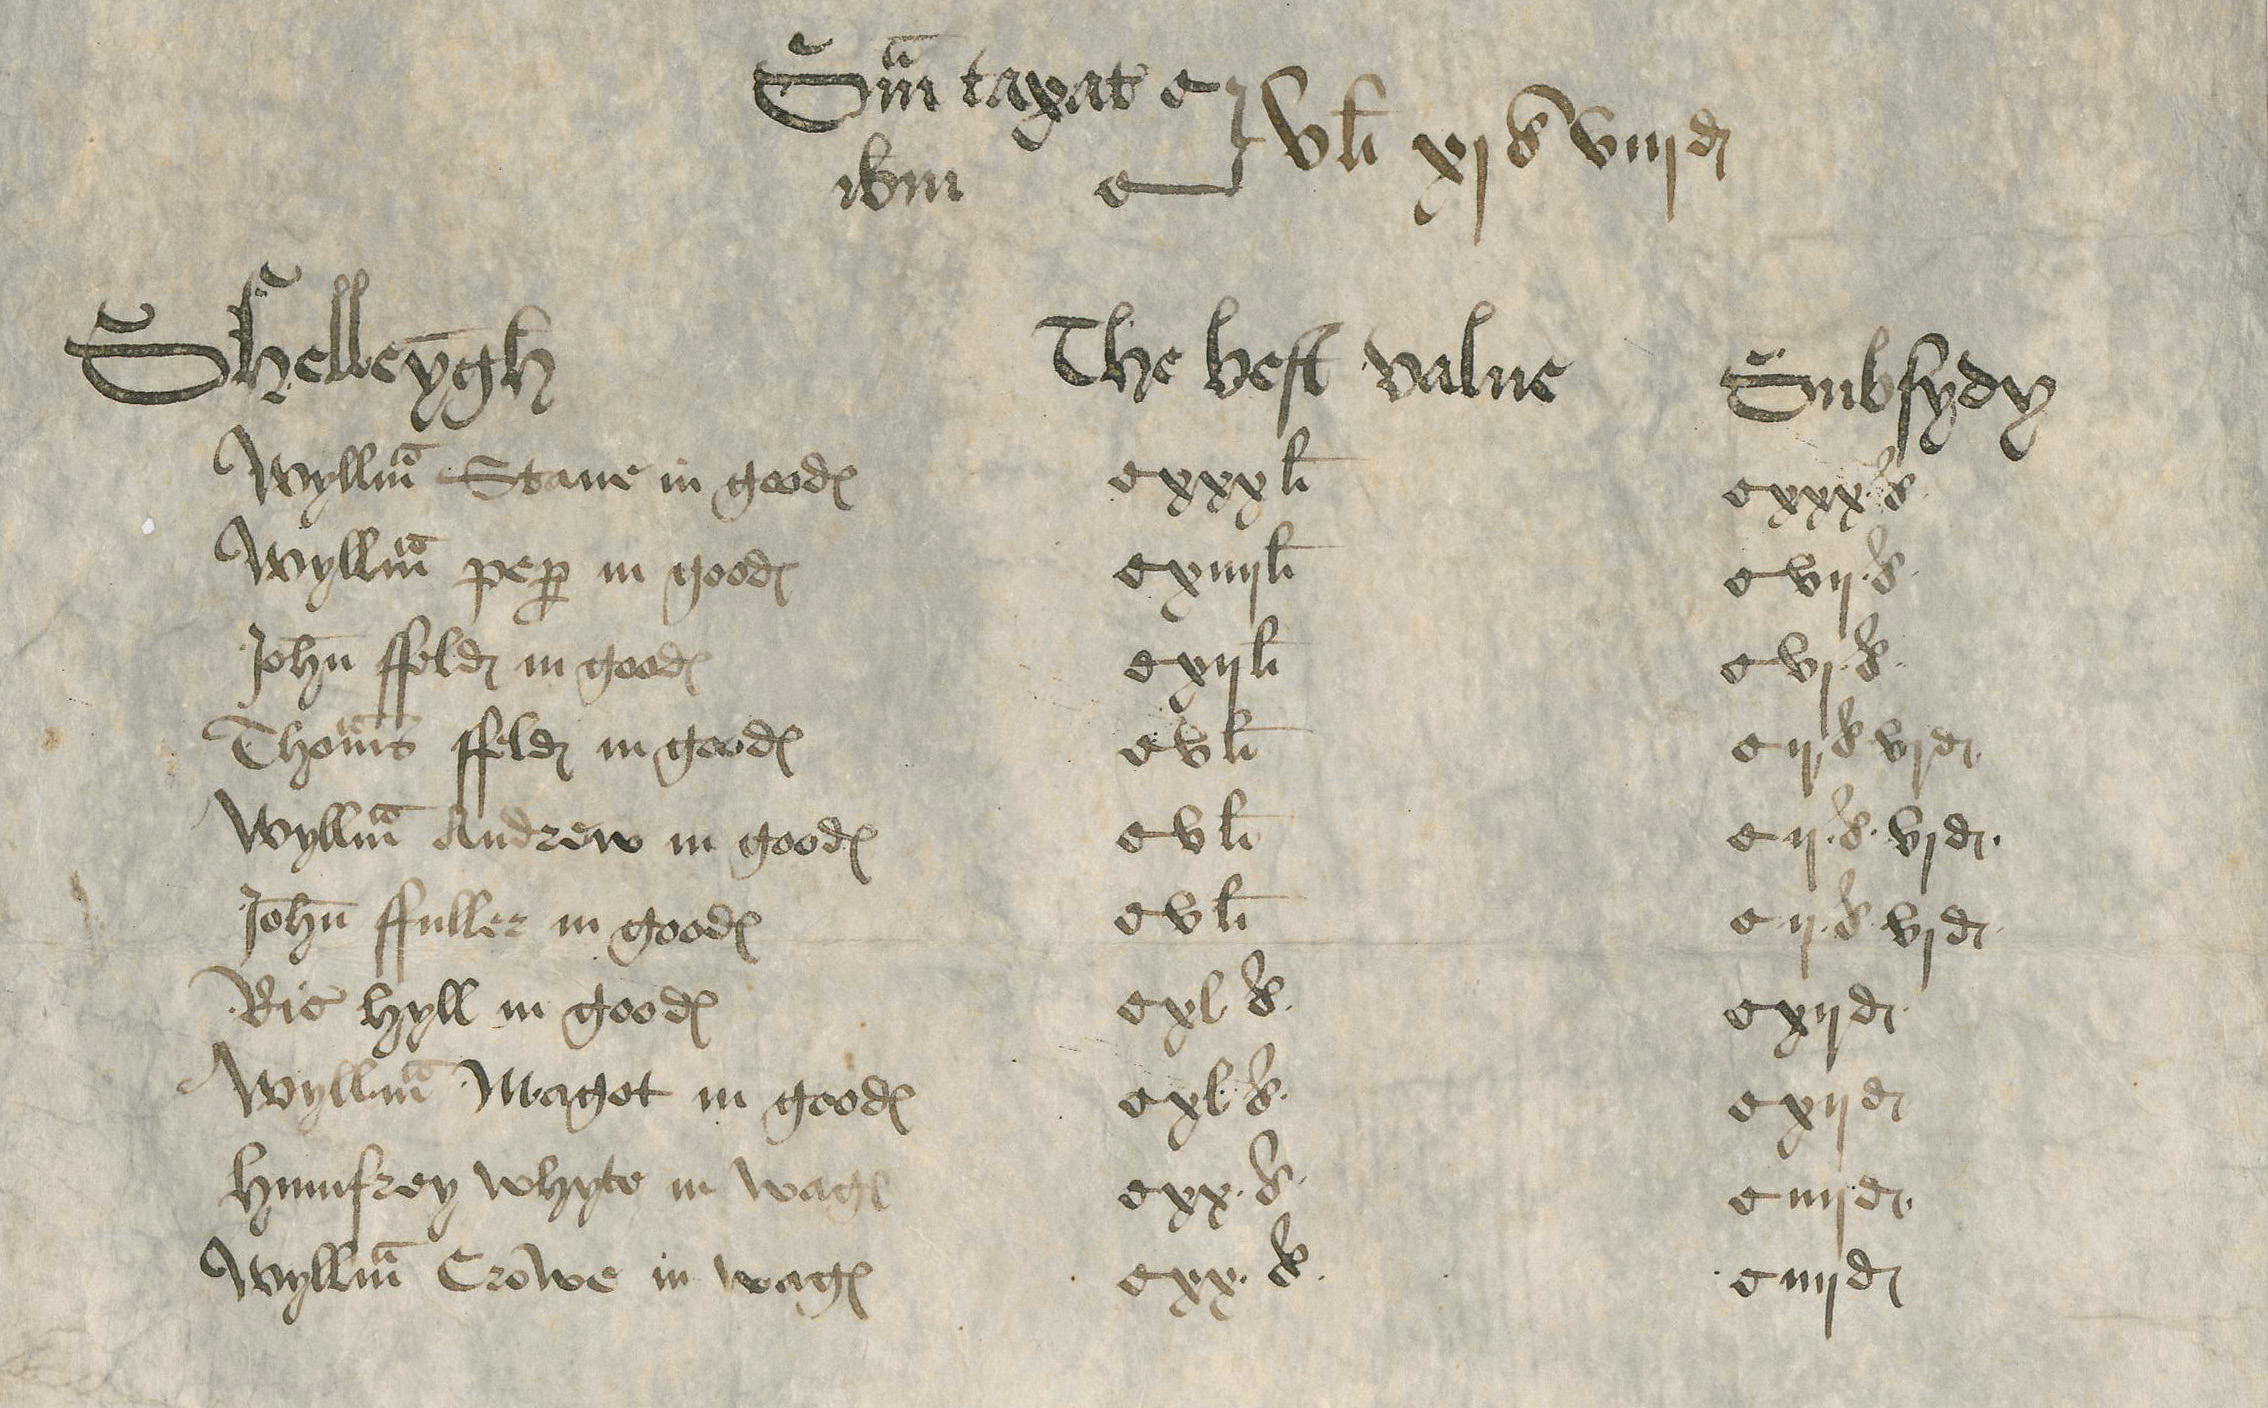 Sma taxat
ibm vli xjs viijd
Shelleygh The best value Subsydy
Wyllm Stane in goodes xxxli xxxs
Wyllm pep in goodes xiiijli vijs
John ffeld in goodes xijli vjs
Thomas ffeld in goodes vli ijs vjd
Wyllm Andrew in goodes vli ijs vjd
John ffuller in goodes vli ijs vjd
Ric hyll in goodes xls xijd
Wyllm Magot in goodes xls xijd
humfrey whyte in wages xxs iiijd
Wyllm Crowe in wages xxs iiijd